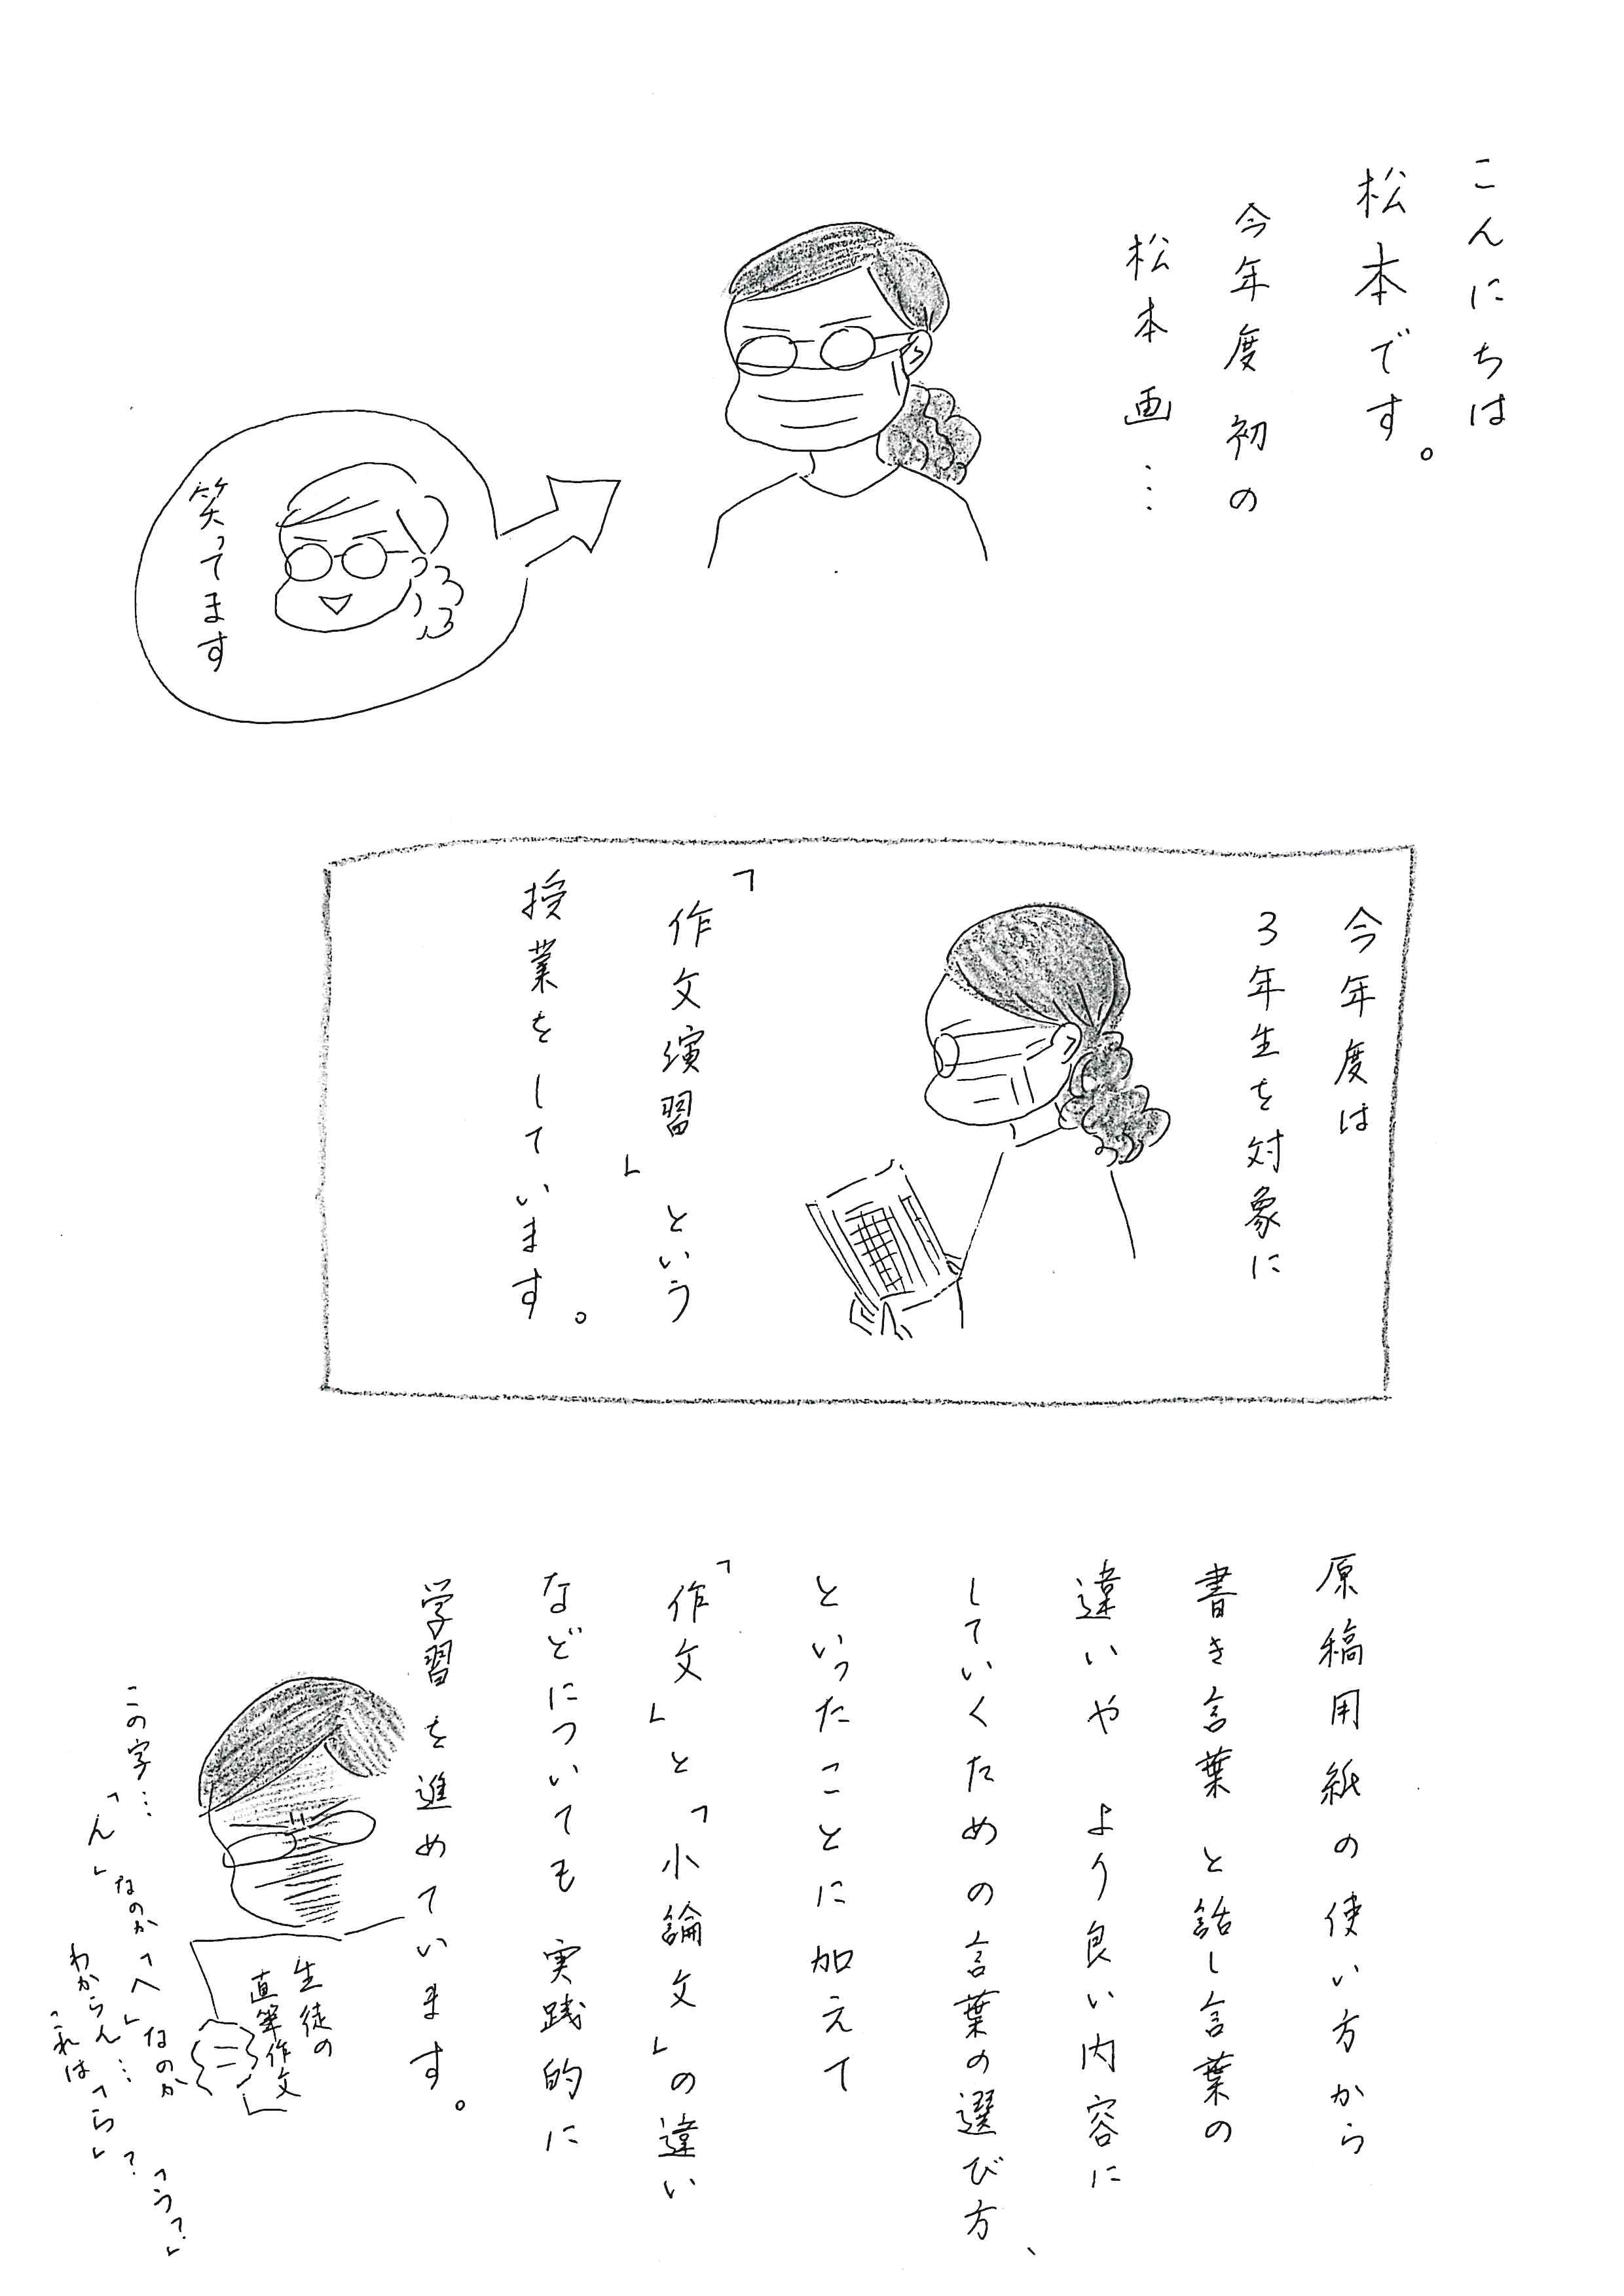 こんにちは
松本です。
今年度初の
松本画…
笑ってます
今年度は
3年生を対象に
「作文演習」という
授業をしています。
原稿用紙の使い方から
書き言葉と話し言葉の
違いや より良い内容に
していくための言葉の選び方、
といったことに加えて
「作文」と「小論文」の違い
などについても実践的に
学習を進めています。
生徒の
直筆作文
この字…
「ん」なのか「へ」なのか
わからん…
これは「ら」?「う?」